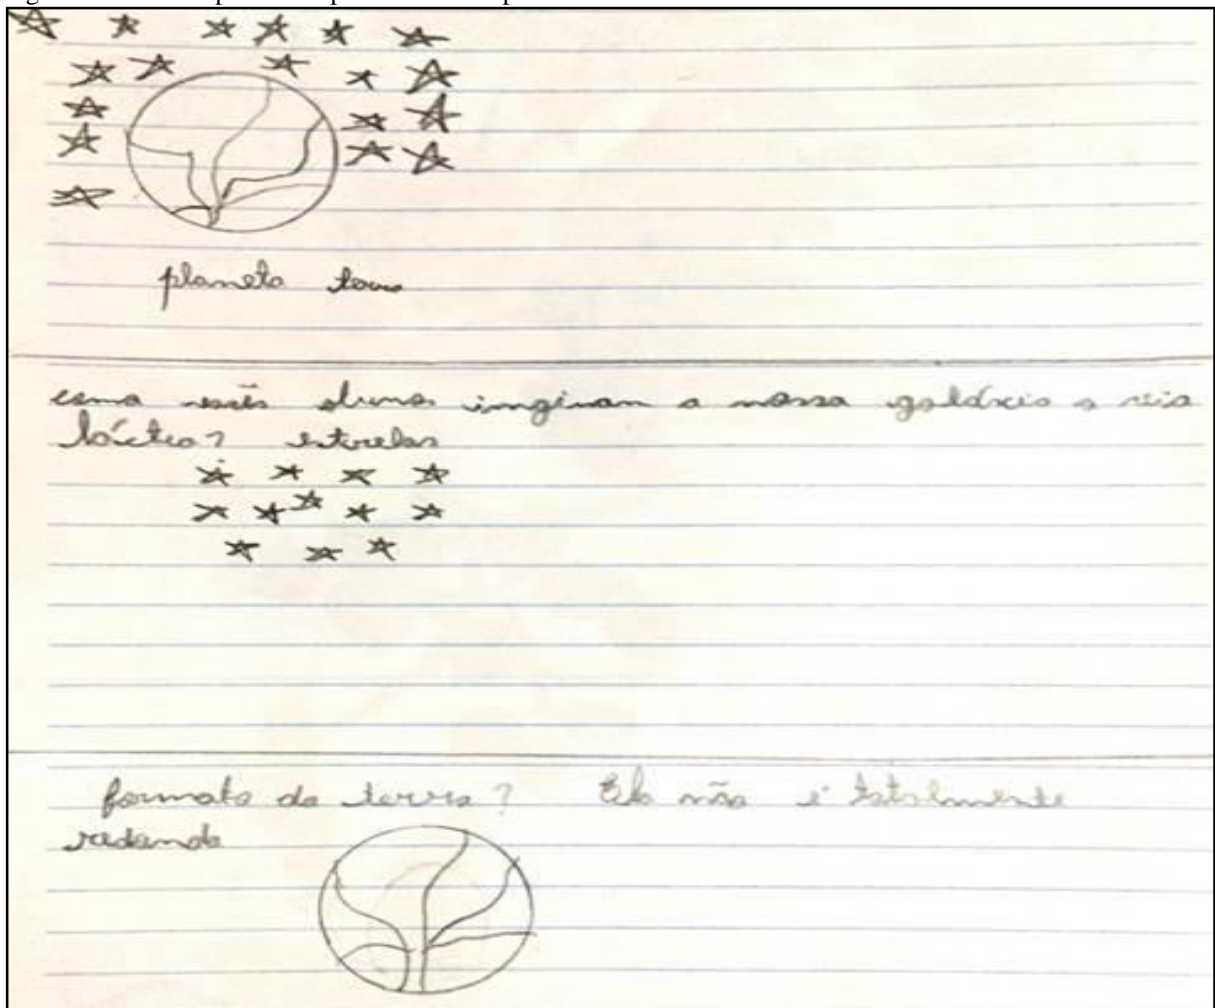 planeta terra
como vocês alunos imginam a nossa galáxia a via
láctea? estrelas
formato da terra? Ela não é totalmente
redonda